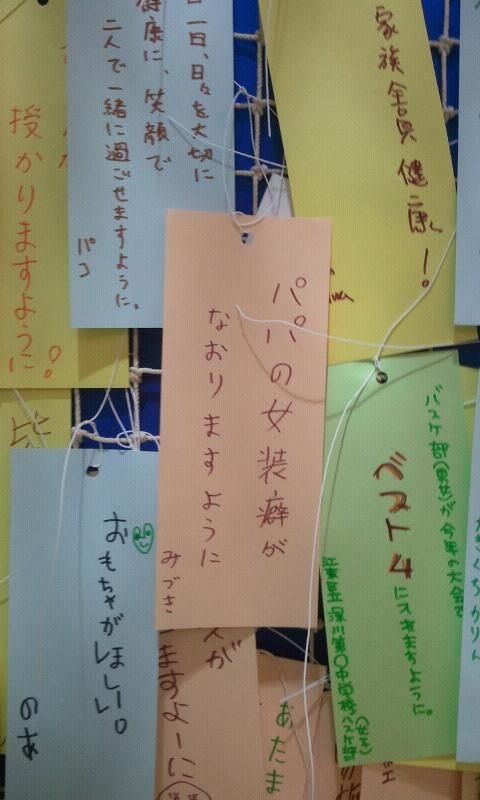 家族全員健康!
日一日、日々を大切に
健康に、笑顔で
二人で一緒に過ごせますように。
パコ
授かりますように!
パパの女装癖が
なおりますように
みづき
バスケ部(男女)が今年の大会で
ベスト4
に入れますように。
江東区立深川第〇中学校バスケ部
(女子)
おもちゃがほしーい。
のあ
ますよーに
あたま